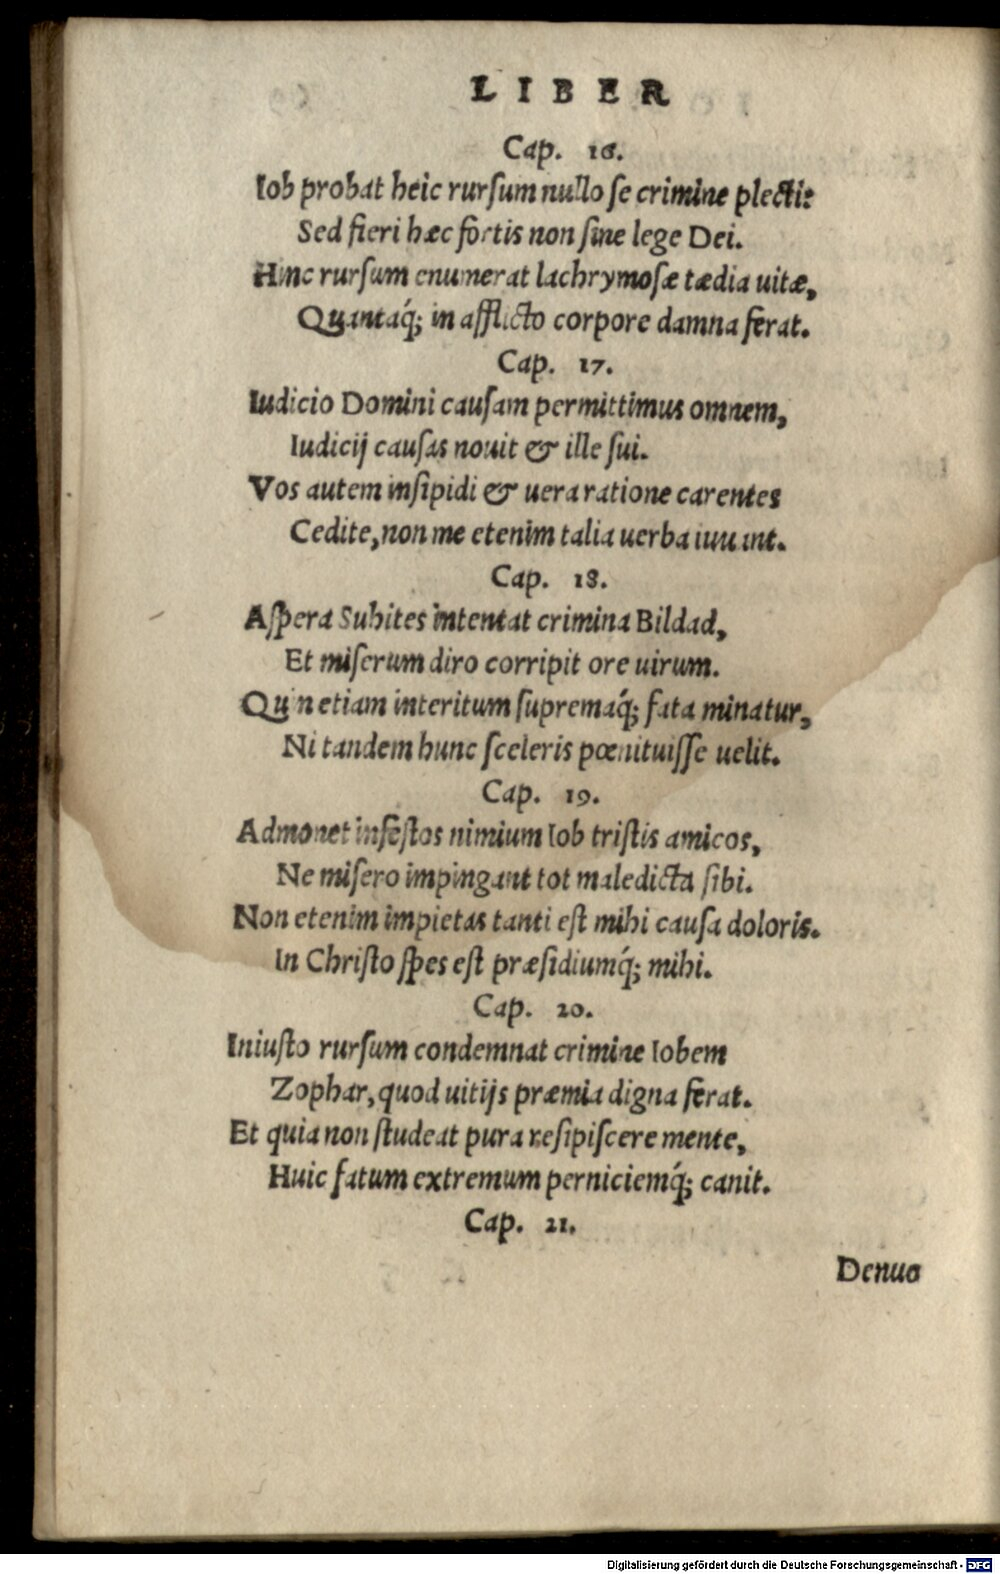 LIBER
Cap. 16.
Iob probat heic rurſum nullo ſe crimine plecti:
Sed fieri hæc fortis non ſine lege Dei.
Hinc rurſum enumerat lachrymoſæ tædia uitæ,
Quantaq́; in afflicto corpore damna ferat.
Cap. 17.
Iudicio Domini cauſam permittimus omnem,
Iudicij cauſas nouit & ille ſui.
Vos autem inſipidi & uera ratione carentes
Cedite, non me etenim talia uerba iuuant.
Cap. 18.
Aſpera Suhites intentat crimina Bildad,
Et miſerum diro corripit ore uirum.
Quin etiam interitum ſupremaq́; fata minatur,
Ni tandem hunc ſceleris pœnituiſſe uelit.
Cap. 19.
Admonet infeſtos nimium Iob triſtis amicos,
Ne miſero impingant tot maledicta ſibi.
Non etenim impietas tanti eſt mihi cauſa doloris.
In Chriſto ſpes eſt præſidiumq́; mihi.
Cap. 20.
Iniuſto rurſum condemnat crimine Iobem
Zophar, quod uitijs præmia digna ferat.
Et quia non ſtudeat pura reſipiſcere mente,
Huic fatum extremum perniciemq́; canit.
Cap. 21.
Denuo
Digitalisierung gefördert durch die Deutsche Forschungsgemeinschaft - DFG